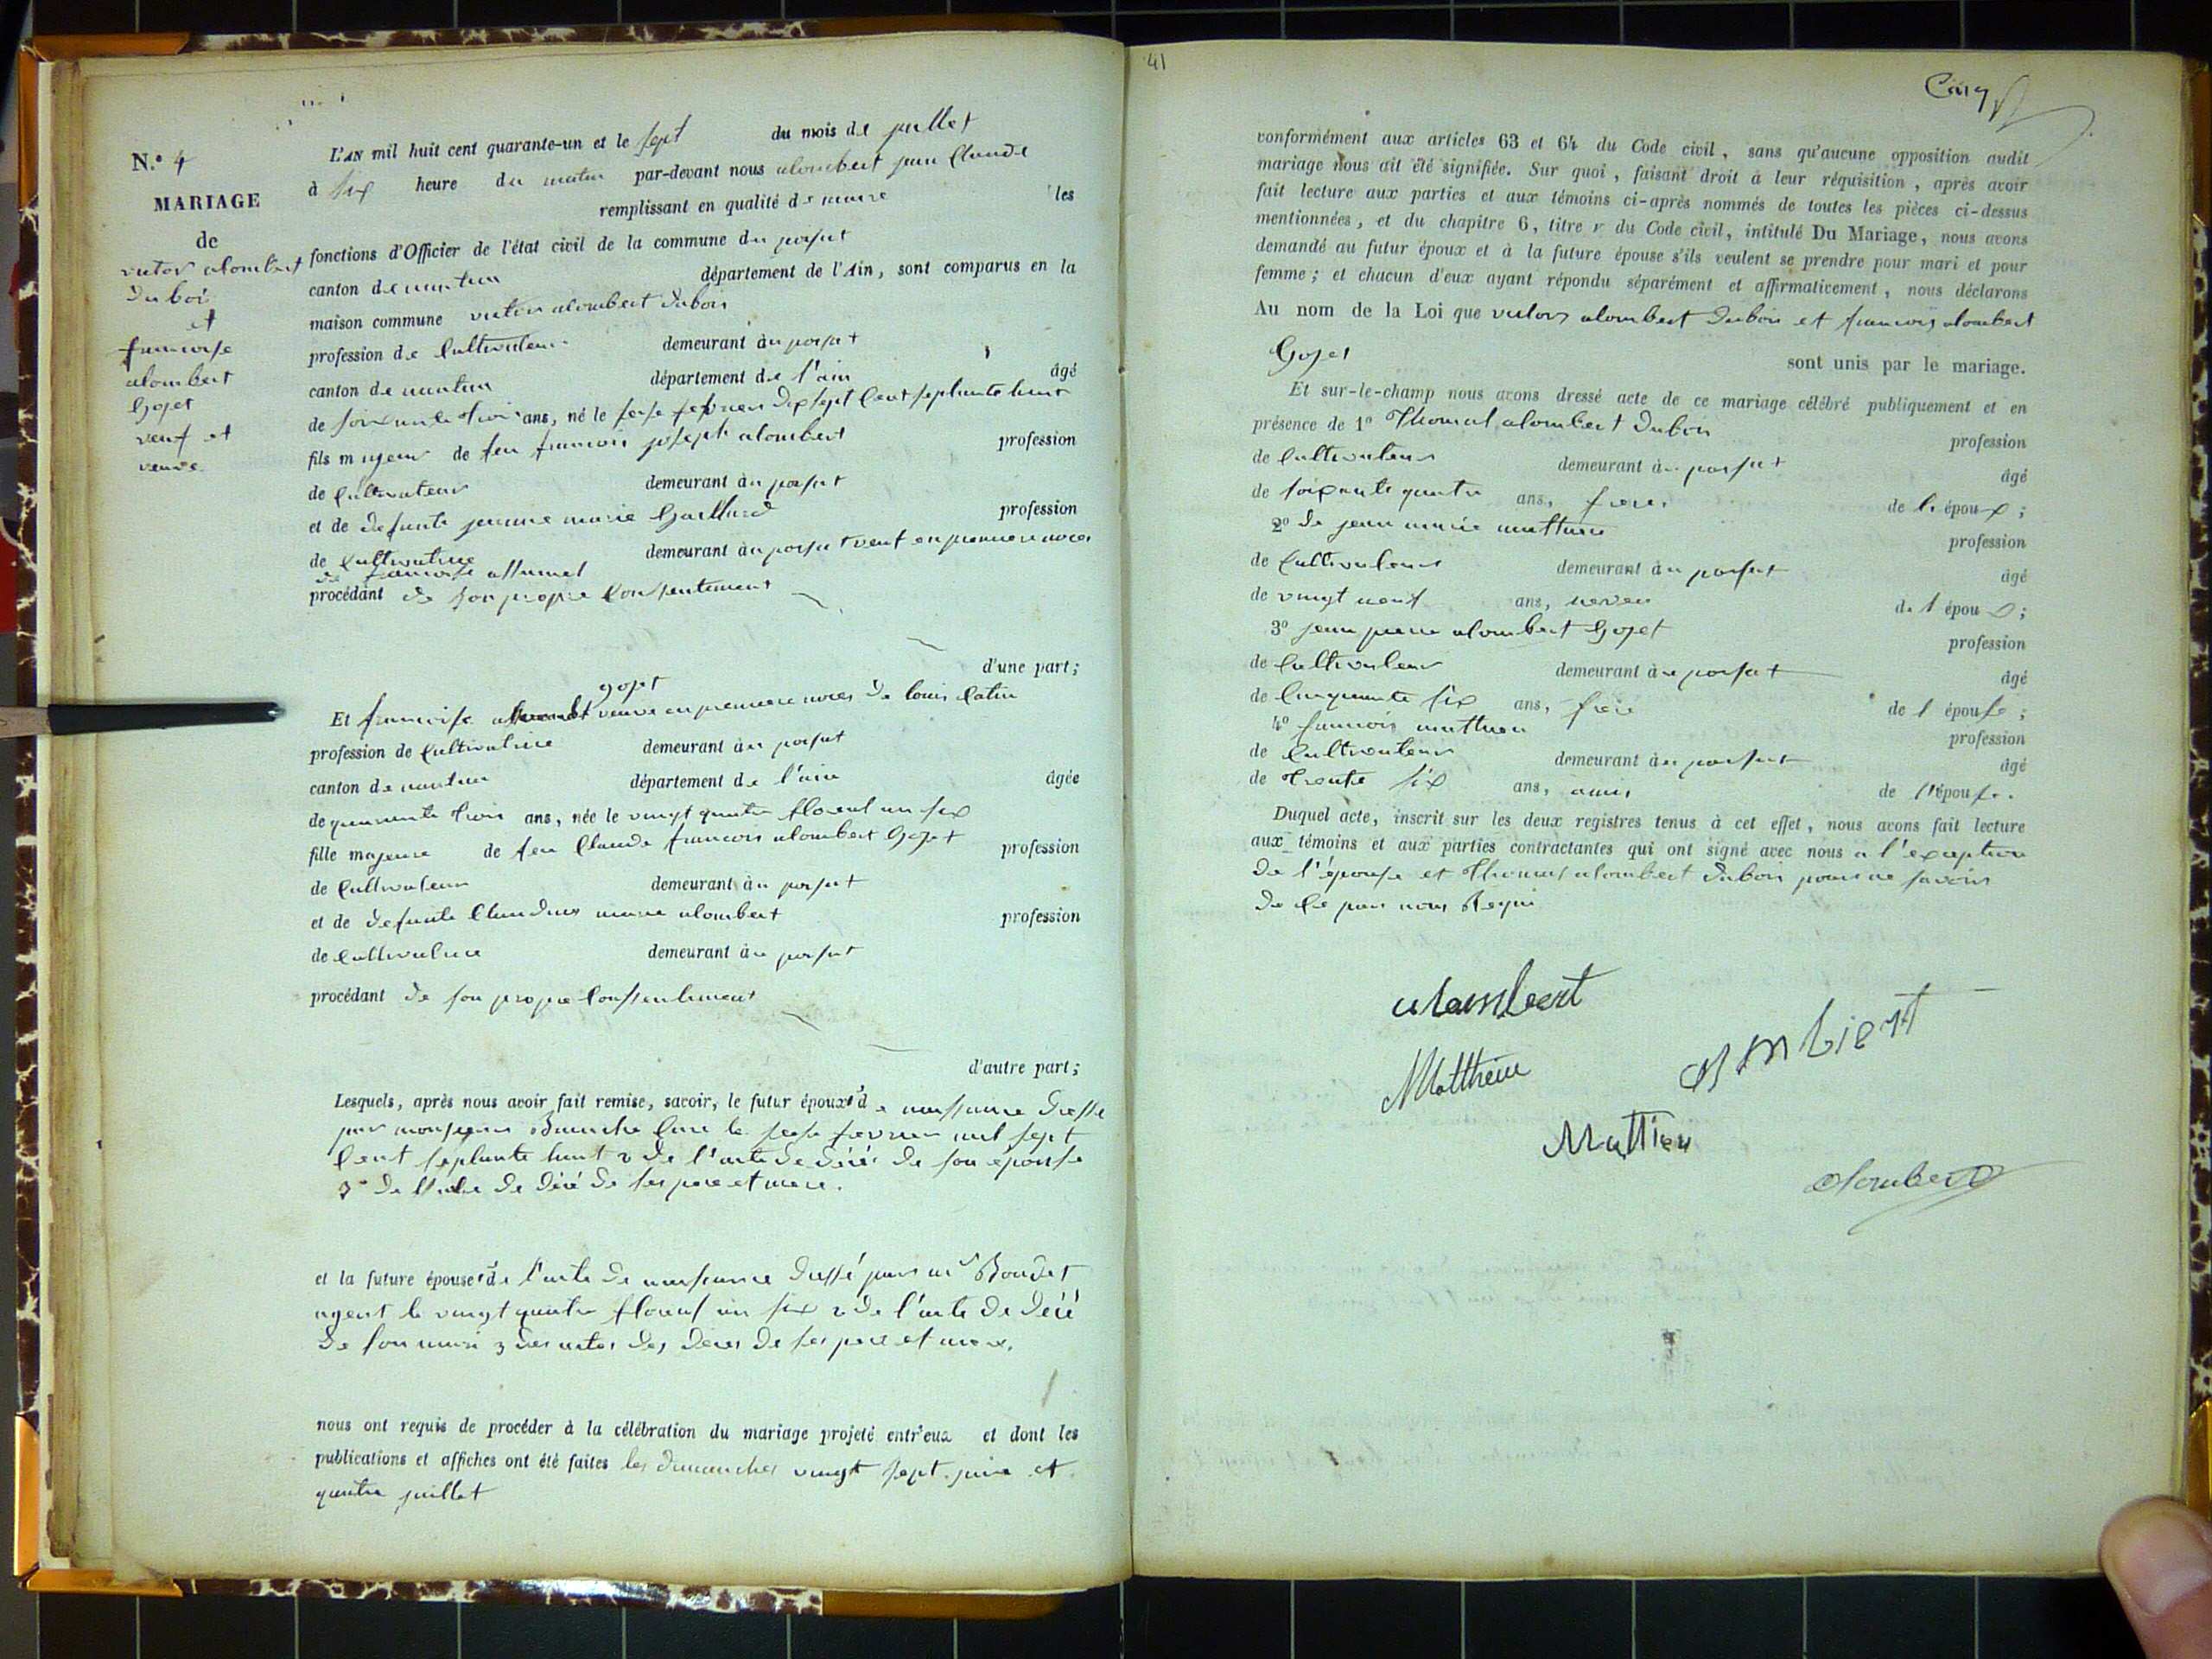 N.º 4
MARIAGE
de
victor alombert
Dubois
et
francoise
alombert
Gojet
veuf et
veuve
L'AN mil huit cent quarante-un et le sept du mois de juillet
à six heure du matin par-devant nous alombert jean Claude
remplissant en qualité de maire les
fonctions d'Officier de l'état civil de la commune du poisat
canton de nantua département de l'Ain, sont comparus en la
maison commune victor alombert Dubois
profession de Cultivateur demeurant au poisat
canton de nantua département de l'ain âgé
de soixante trois ans, né le seize fevrier dix sept Cent septante huit
fils majeur de feu francois joseph alombert profession
de Cultivateur demeurant au poisat
et de defunte jeanne marie Gaillard profession
de Cultivatrice demeurant au poisat veuf en premiere noces
de francoise
procédant de son propre Consentement
d'une part;
gojet
Et francoise veuve en premiere noces de louis
profession de Cultivatrice demeurant au poisat
canton de nantua département de l'ain âgée
de quarante trois ans, née le vingt quatre floreal an six
fille majeure de feu Claude francois alombert Gojet profession
de Cultivateur demeurant au poisat
et de defunte marie alombert profession
de Cultivatrice demeurant au poisat
procédant de son propre Consentement
d'autre part;
Lesquels, après nous avoir fait remise, savoir, le futur époux 1º de naissance dressé
par monsieur Curé le seize fevrier mil sept
Cent septante huit 2 de l'acte de décé de son épouse
3º de l'acte de décé de ses pere et mere.
et la future épouse 1º de l'acte de naissance dressé par mr Boudet
agent le vingt quatre floreal an six 2 de l'acte de décé
de son mari 3 des actes des déces de ses pere et mere.
nous ont requis de procéder à la célébration du mariage projeté entr'eux et dont les
publications et affiches ont été faites les dimanches vingt sept juin et
quatre juillet
41
conformément aux articles 63 et 64 du Code civil, sans qu'aucune opposition audit
mariage nous ait été signifiée. Sur quoi, faisant droit à leur réquisition, après avoir
fait lecture aux parties et aux témoins ci-après nommés de toutes les pièces ci-dessus
mentionnées, et du chapitre 6, titre v du Code civil, intitulé Du Mariage, nous avons
demandé au futur époux et à la future épouse s'ils veulent se prendre pour mari et pour
femme; et chacun d'eux ayant répondu séparément et affirmativement, nous déclarons
Au nom de la Loi que victor alombert Dubois et francois alombert
Gojet sont unis par le mariage.
Et sur-le-champ nous avons dressé acte de ce mariage célébré publiquement et en
présence de 1º Thomas alombert Dubois profession
de Cultivateur demeurant au poisat âgé
de soixante quatre ans, frere de l'époux;
2º de jean marie matthieu profession
de Cultivateur demeurant au poisat âgé
de vingt neuf ans, neveu de l époux;
3º jean pierre alombert Gojet profession
de Cultivateur demeurant au poisat âgé
de Cinquante six ans, frere de l épouse;
4º francois matthieu profession
de Cultivateur demeurant au poisat âgé
de trente six ans, ami de l'épouse.
Duquel acte, inscrit sur les deux registres tenus à cet effet, nous avons fait lecture
aux témoins et aux parties contractantes qui ont signé avec nous a l'exception
de l'épouse et Thomas alombert Dubois pour ne savoir
de Ce par nous Requi
alombert
Matthieu
Mattieu
alombert